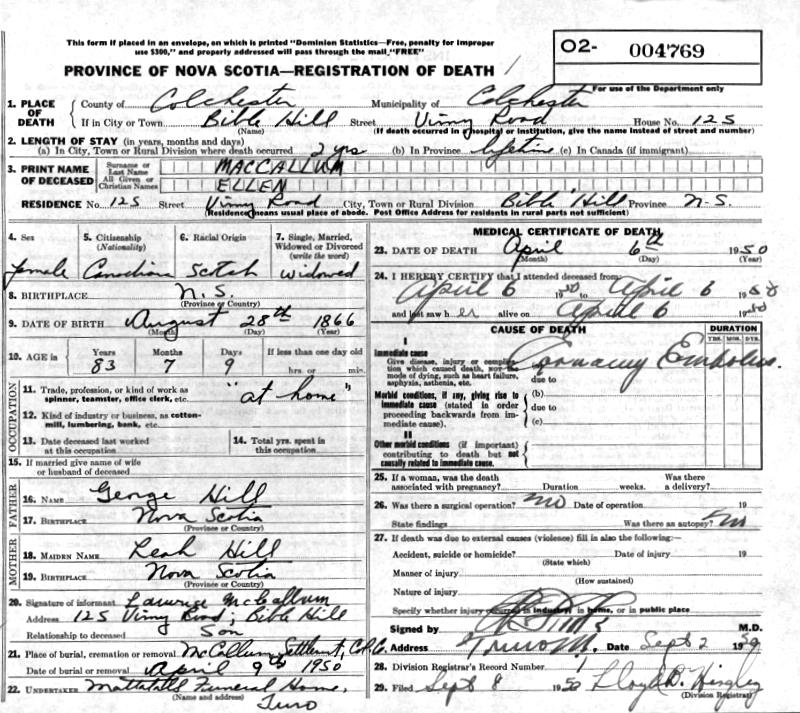 This form if placed in an envelope, on which is printed "Dominion Statistics—Free, penalty for improper
use $300," and properly addressed will pass through the mail "FREE"
O2- 004769
For use of the Department only
PROVINCE OF NOVA SCOTIA—REGISTRATION OF DEATH
1. PLACE OF DEATH
County of Colchester Municipality of Colchester
If in City or Town Bible Hill Street Vimy Road House No. 125
(Name) (If death occurred in hospital or institution, give the name instead of street and number)
2. LENGTH OF STAY (in years, months and days)
(a) In City, Town or Rural Division where death occurred 2 yrs (b) In Province lifetime (c) In Canada (if immigrant)
3. PRINT NAME OF DECEASED
Surname or Last Name MACCALLUM
All Given or Christian Names ELLEN
RESIDENCE No. 125 Street Vimy Road City, Town or Rural Division Bible Hill Province N.S.
(Residence means usual place of abode. Post Office Address for residents in rural parts not sufficient)
4. Sex 5. Citizenship (Nationality) 6. Racial Origin 7. Single, Married, Widowed or Divorced (write the word)
female Canadian Scotch widowed
8. BIRTHPLACE N.S.
(Province or Country)
9. DATE OF BIRTH August 28th 1866
(Month) (Day) (Year)
10. AGE in Years Months Days If less than one day old
83 7 9 hrs. or min.
OCCUPATION
11. Trade, profession, or kind of work as spinner, teamster, office clerk, etc. "at home"
12. Kind of industry or business, as cotton-mill, lumbering, bank, etc.
13. Date deceased last worked at this occupation
14. Total yrs. spent in this occupation
15. If married give name of wife or husband of deceased
FATHER
16. NAME George Hill
17. BIRTHPLACE Nova Scotia
(Province or Country)
MOTHER
18. MAIDEN NAME Leah Hill
19. BIRTHPLACE Nova Scotia
(Province or Country)
20. Signature of informant Laurie McCallum
Address 125 Vimy Road; Bible Hill
Relationship to deceased Son
21. Place of burial, cremation or removal McCallum Settlement, Col. C.
Date of burial or removal April 9th 1950
22. UNDERTAKER Mattatalls Funeral Home,
(Name and address) Truro
MEDICAL CERTIFICATE OF DEATH
23. DATE OF DEATH April 6th 1950
(Month) (Day) (Year)
24. I HEREBY CERTIFY that I attended deceased from
April 6 1950 to April 6 1950
and last saw her alive on April 6 1950
CAUSE OF DEATH DURATION
YRS. MOS. DYS.
I
Immediate cause Coronary Embolus.
Give disease, injury or complication which caused death, not the mode of dying, such as heart failure, asphyxia, asthenia, etc.
due to
Morbid conditions, if any, giving rise to immediate cause (stated in order proceeding backwards from immediate cause).
(b)
due to
(c)
II
Other morbid conditions (if important) contributing to death but not causally related to immediate cause.
25. If a woman, was the death associated with pregnancy? Duration weeks. Was there a delivery?
26. Was there a surgical operation? no Date of operation 19
State findings Was there an autopsy? no
27. If death was due to external causes (violence) fill in also the following:—
Accident, suicide or homicide? Date of injury 19
(State which)
Manner of injury
(How sustained)
Nature of injury
Specify whether injury occurred in industry, in home, or in public place
Signed by M.D.
Address Truro Date Sept 2 1950
28. Division Registrar's Record Number
29. Filed Sept 8 1950 Lloyd B. Hingley
(Division Registrar)